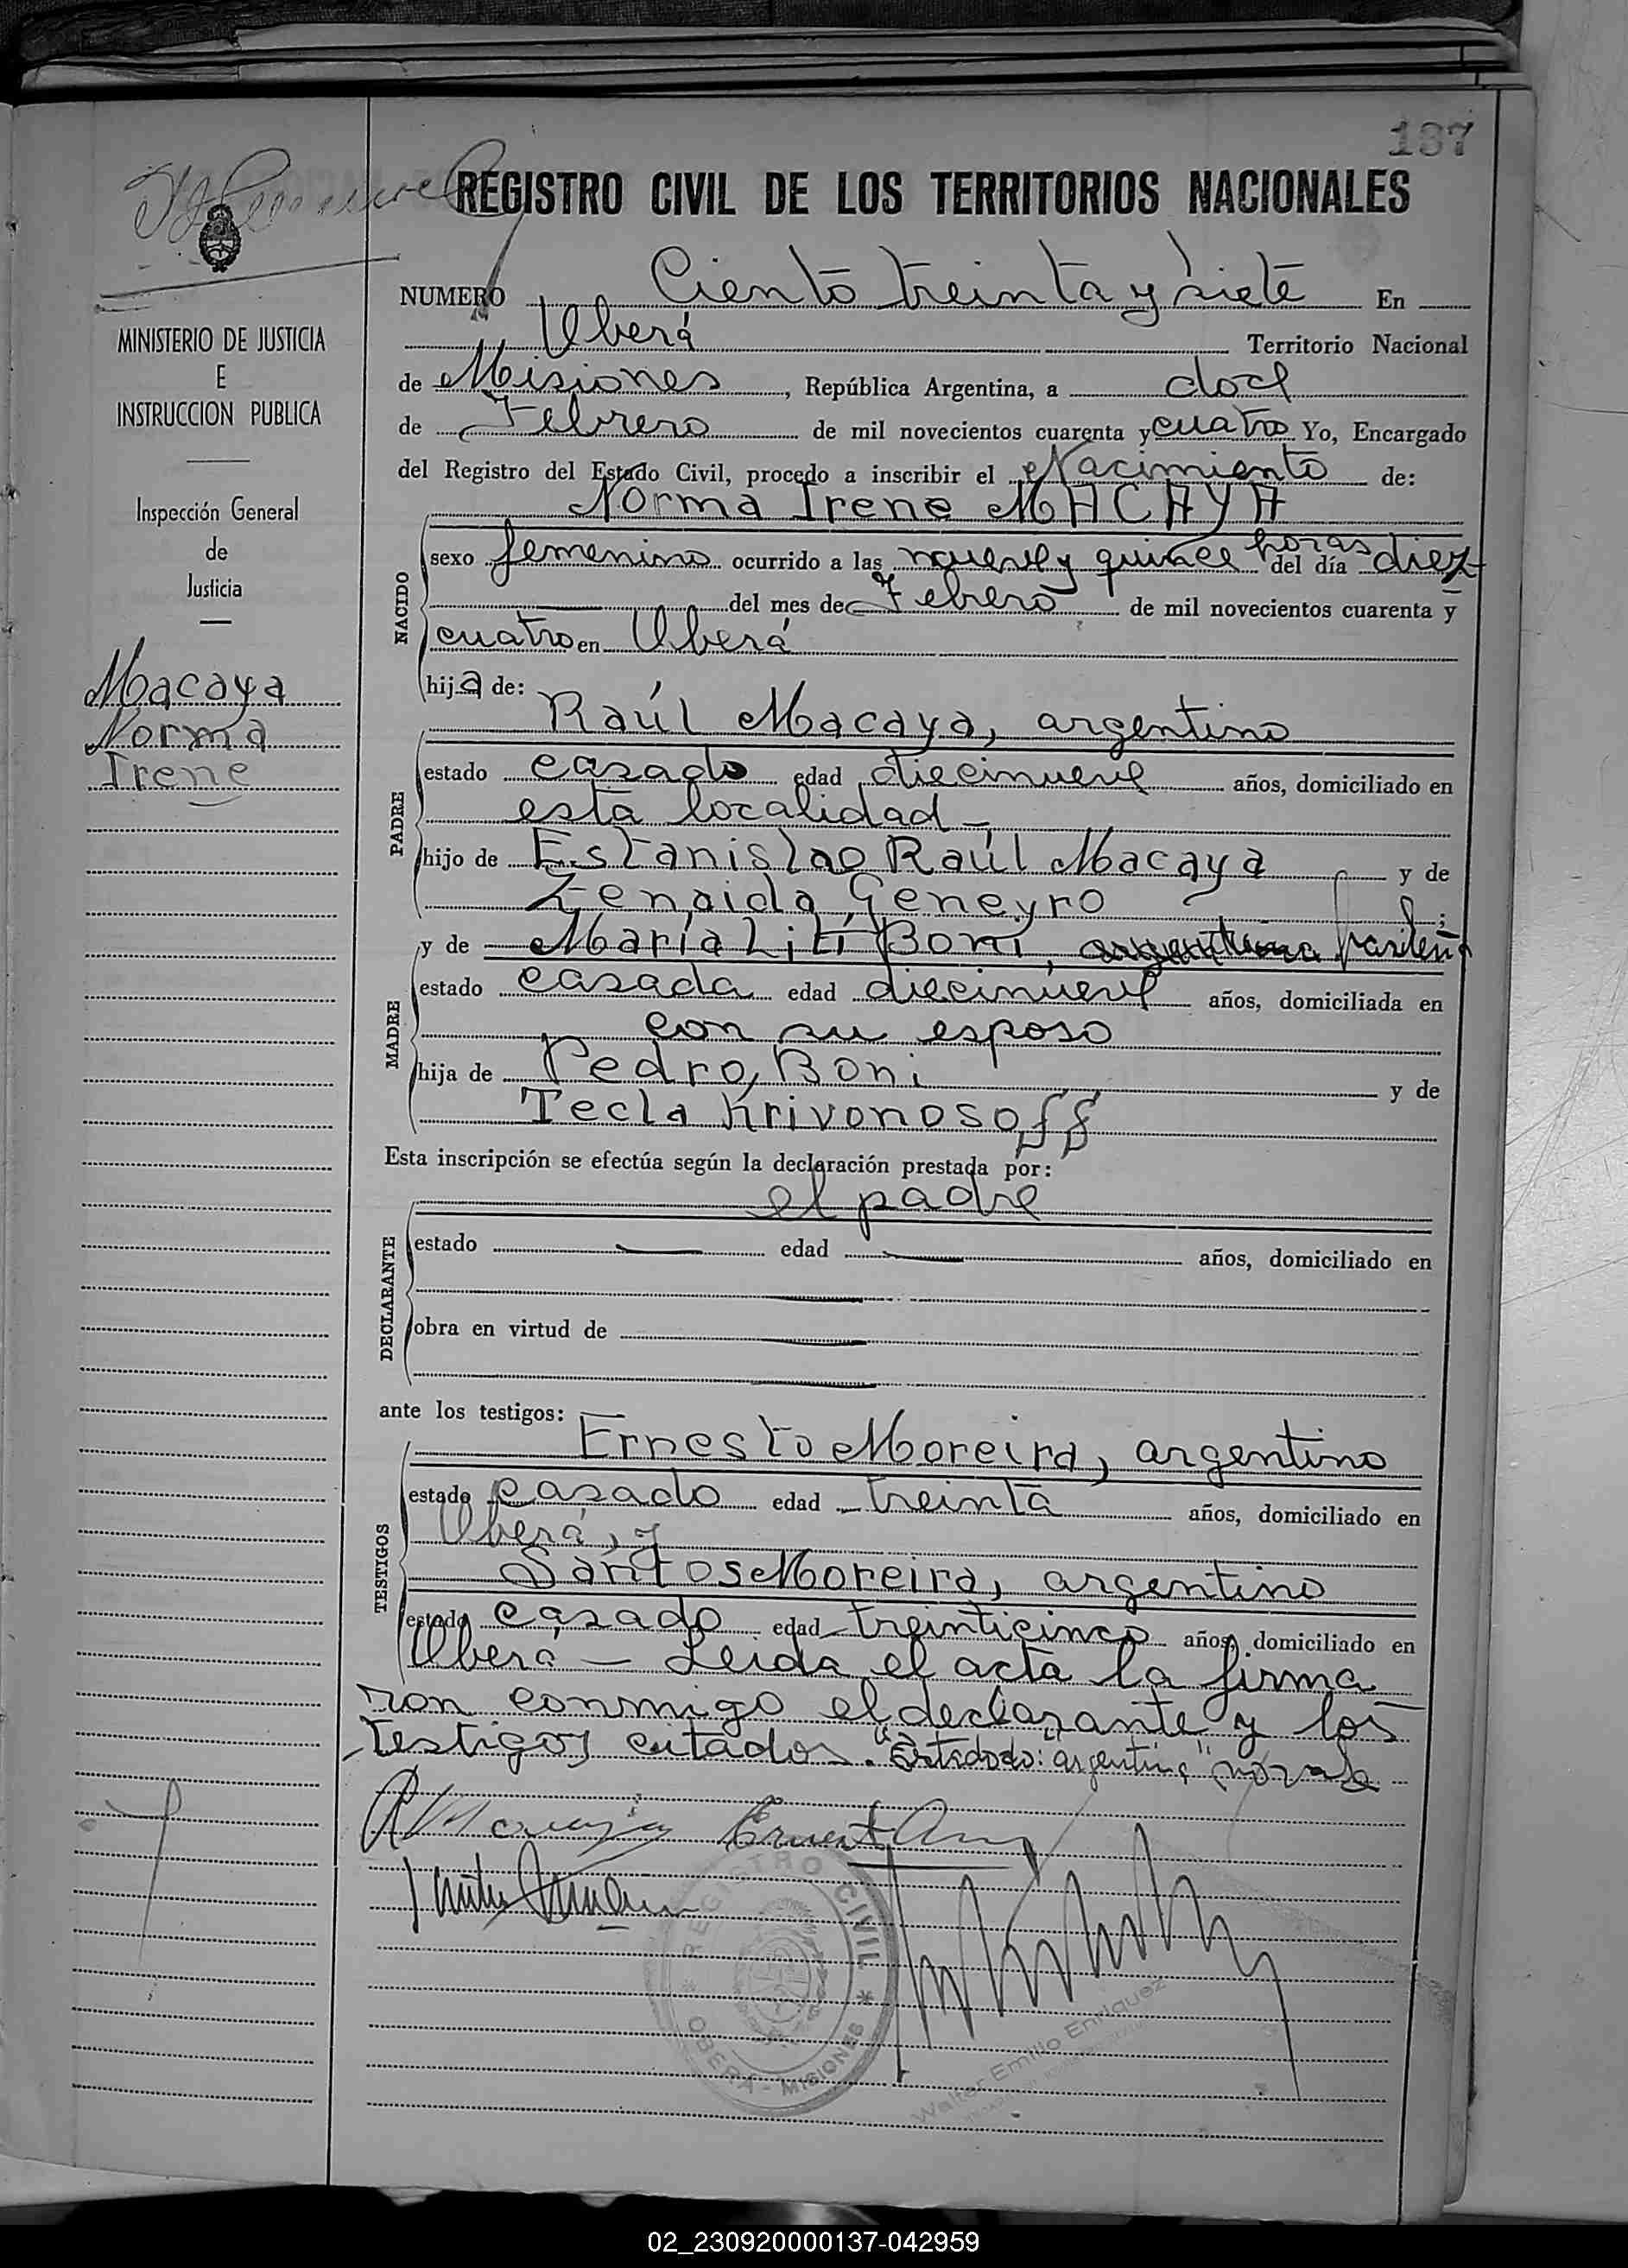 137
REGISTRO CIVIL DE LOS TERRITORIOS NACIONALES
MINISTERIO DE JUSTICIA
E
INSTRUCCION PUBLICA
Inspección General
de
Justicia
Macaya
Norma
Irene
NUMERO Ciento treinta y siete En
Oberá Territorio Nacional
de Misiones, República Argentina, a doce
de Febrero de mil novecientos cuarenta y cuatro Yo, Encargado
del Registro del Estado Civil, procedo a inscribir el Nacimiento de:
Norma Irene MACAYA
NACIDO
sexo femenino ocurrido a las nueve y quince horas del día diez
del mes de Febrero de mil novecientos cuarenta y
cuatro en Oberá
hija de:
Raúl Macaya, argentino
PADRE
estado casado edad diecinueve años, domiciliado en
esta localidad
hijo de Estanislao Raúl Macaya y de
Zenaida Geneyro
MADRE
y de María Lilí Boni, argentina brasileña
estado casada edad diecinueve años, domiciliada en
con su esposo
hija de Pedro Boni y de
Tecla Krivonosoff
Esta inscripción se efectúa según la declaración prestada por:
el padre
DECLARANTE
estado edad años, domiciliado en
obra en virtud de
ante los testigos:
Ernesto Moreira, argentino
TESTIGOS
estado casado edad treinta años, domiciliado en
Oberá, y
Santos Moreira, argentino
estado casado edad treinticinco años, domiciliado en
Oberá — Leida el acta la firma
ron conmigo el declarante y los
testigos citados. "Testado: argentina" no vale
REGISTRO CIVIL * OBERA - MISIONES *
Walter Emilio Enriquez
02_230920000137-042959